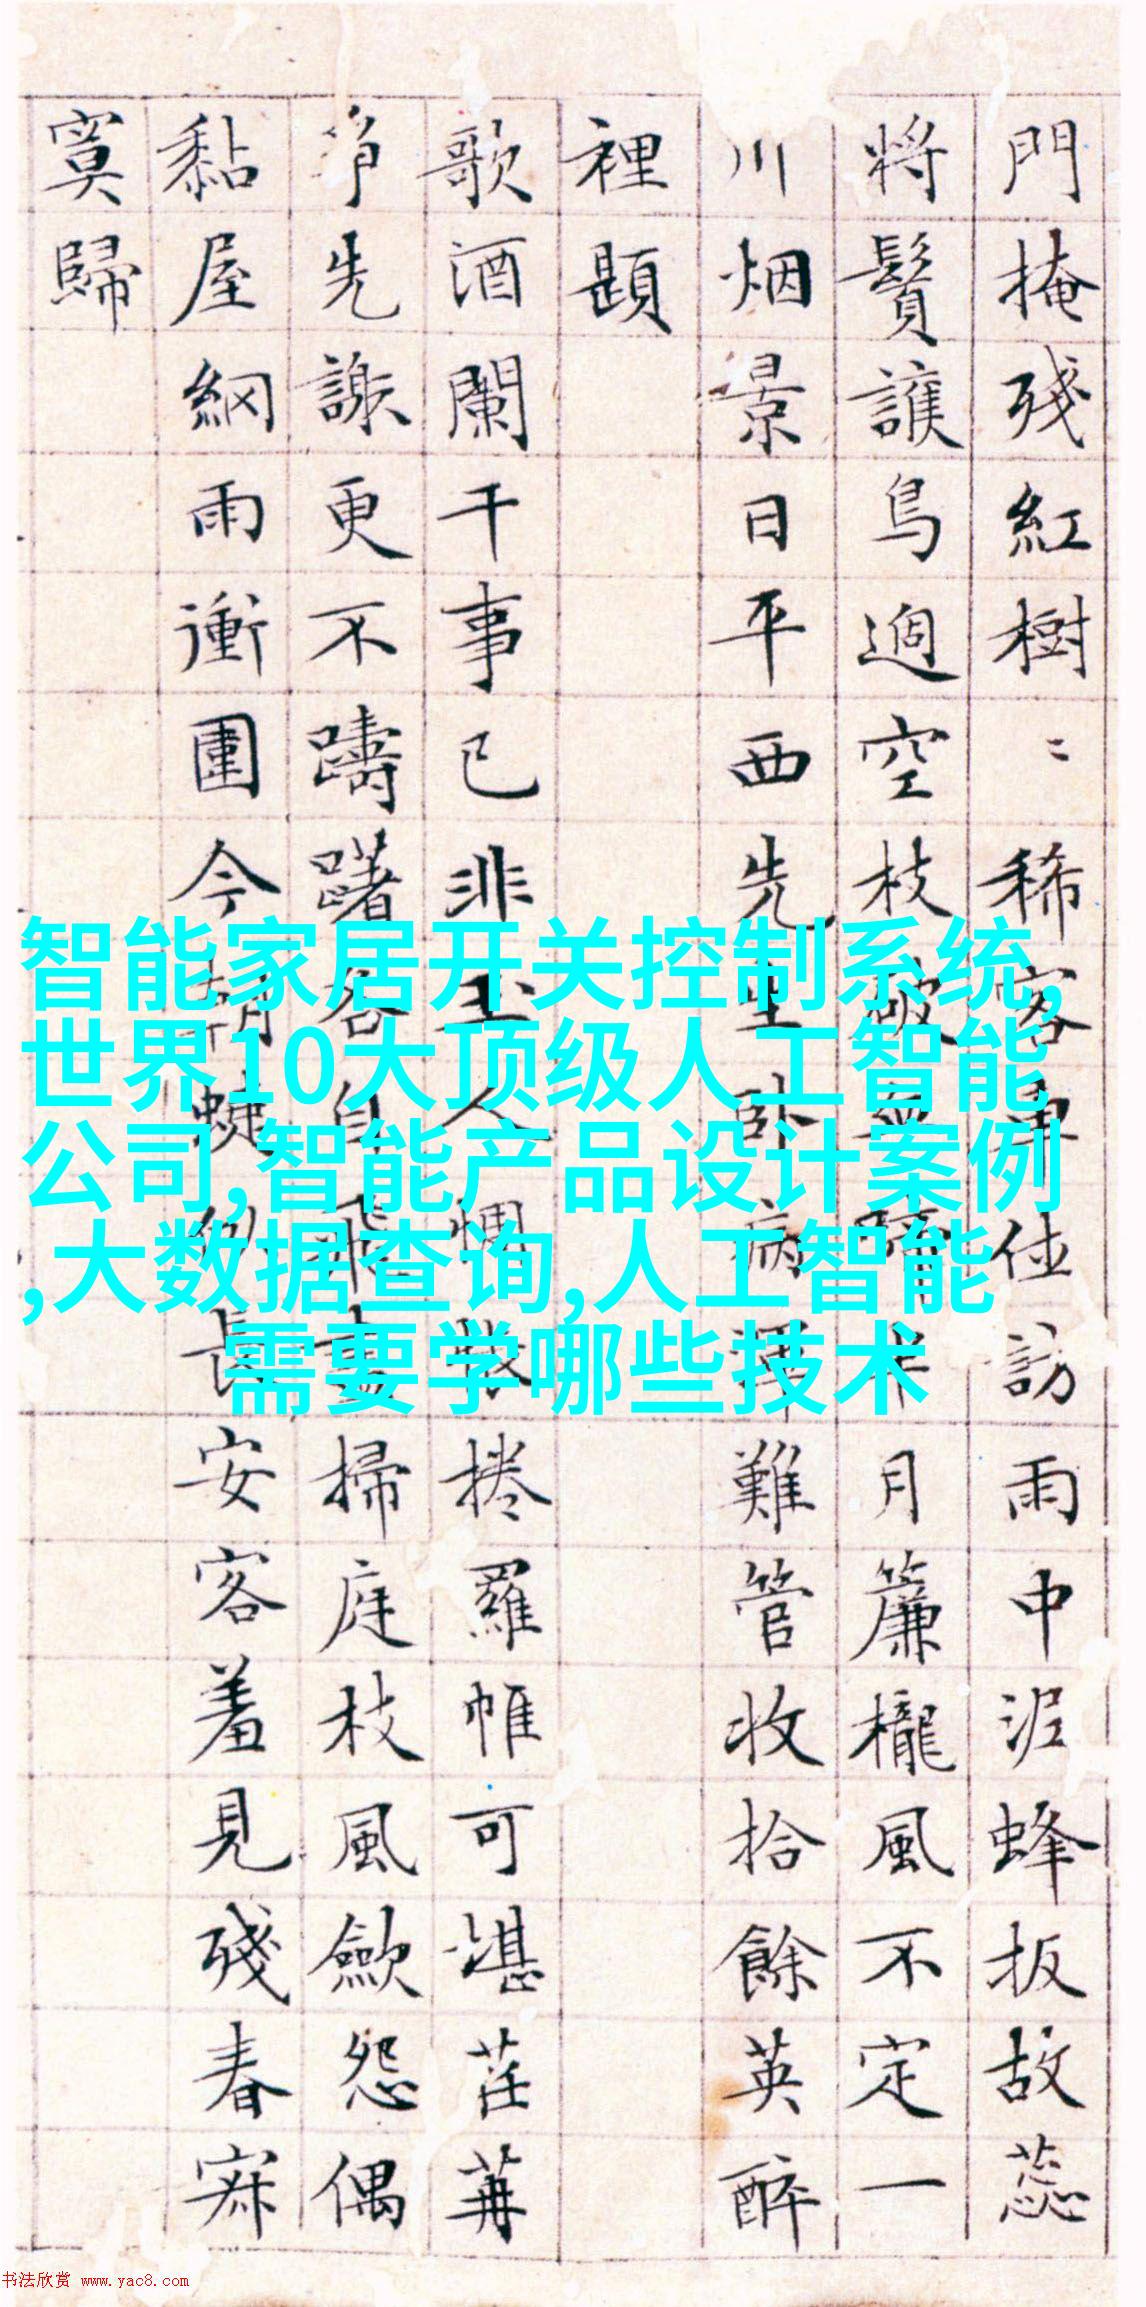 門掩殘紅樹〻稀客訪雨中泥蜂扳故蕊
將鬢護鳥過空枝月簾櫳風不定一
川烟景日平西先生卧病禪難管收拾餘英醉
裡題
歌酒闌干事已非玉人惆悵捲羅帷可堪荏苒
爭先謝更不躊躇各自飛掃庭枝風歛怨偶
黏屋網雨衝圍今朝長安客羞見殘春寂
寞歸
智能家居开关控制系统,
世界10大顶级人工智能
公司,智能产品设计案例
,大数据查询,人工智能
需要学哪些技术
书法欣赏 www.yac8.com